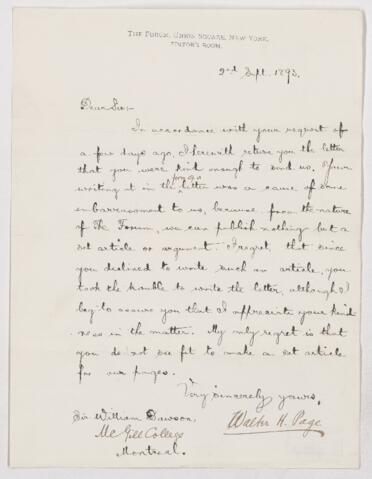 THE FORUM, UNION SQUARE, NEW YORK.
EDITOR'S ROOM.
2nd Sept. 1893.
Dear Sir:-
In accordance with your request of
a few days ago, I herewith return you the letter
that you were kind enough to send us. Your
writing it in the form of a letter was a cause of some
embarrassment to us, because from the nature
of The Forum, we can publish nothing but a
set article or argument. I regret that since
you declined to write such an article, you
took the trouble to write the letter, although I
beg to assure you that I appreciate your kind
-ness in the matter. My only regret is that
you do not see fit to make a set article
for our pages.
Very sincerely yours,
Sir William Dawson,
Walter H. Page
McGill College
Montreal.